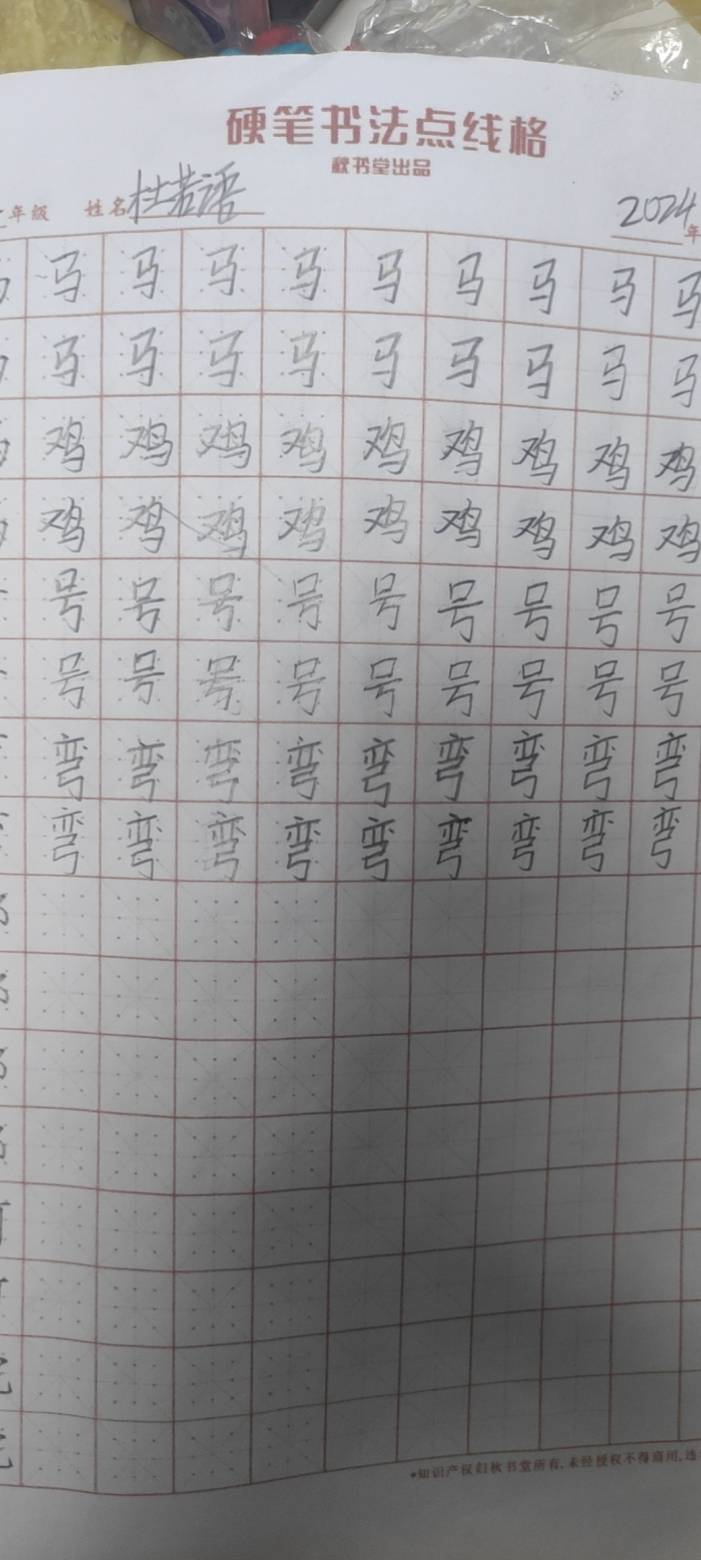 硬笔书法点线格
秋书堂出品
年级 姓名 杜若语 2024 年
马 马 马 马 马 马 马 马 马
马 马 马 马 马 马 马 马 马
鸡 鸡 鸡 鸡 鸡 鸡 鸡 鸡 鸡
鸡 鸡 鸡 鸡 鸡 鸡 鸡 鸡 鸡
号 号 号 号 号 号 号 号 号
号 号 号 号 号 号 号 号 号
弯 弯 弯 弯 弯 弯 弯 弯 弯
弯 弯 弯 弯 弯 弯 弯 弯 弯
*知识产权归秋书堂所有,未经授权不得商用,违